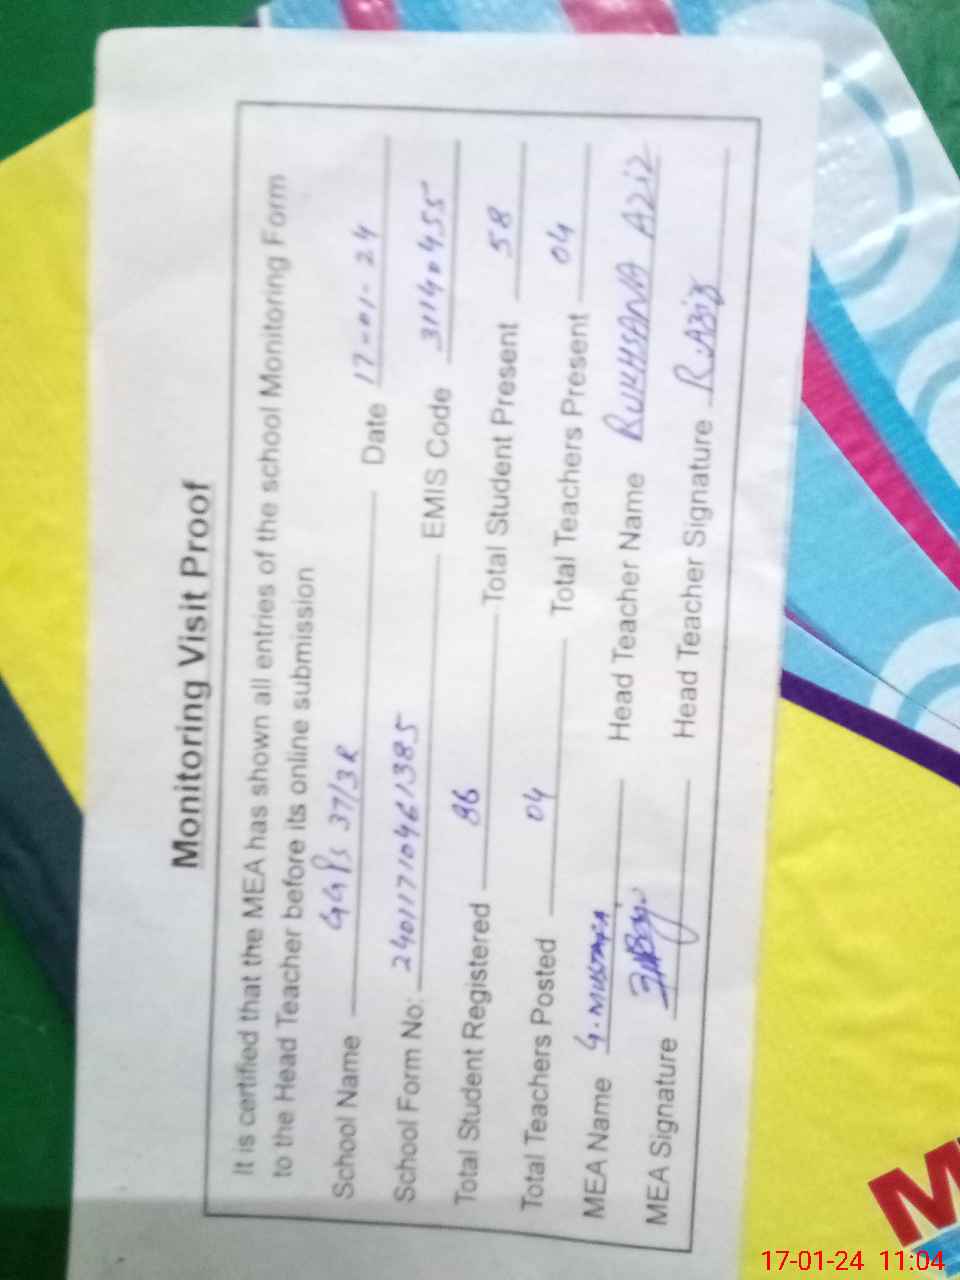 Monitoring Visit Proof
It is certified that the MEA has shown all entries of the school Monitoring Form
to the Head Teacher before its online submission
School Name GGPS 37/3R Date 17-01-24
School Form No: 24011710461385 EMIS Code 31140455
Total Student Registered 86 Total Student Present 58
Total Teachers Posted 04 Total Teachers Present 04
MEA Name G.MUSTAFA Head Teacher Name RUKHSANA AZIZ
MEA Signature Head Teacher Signature R.Aziz
17-01-24 11:04